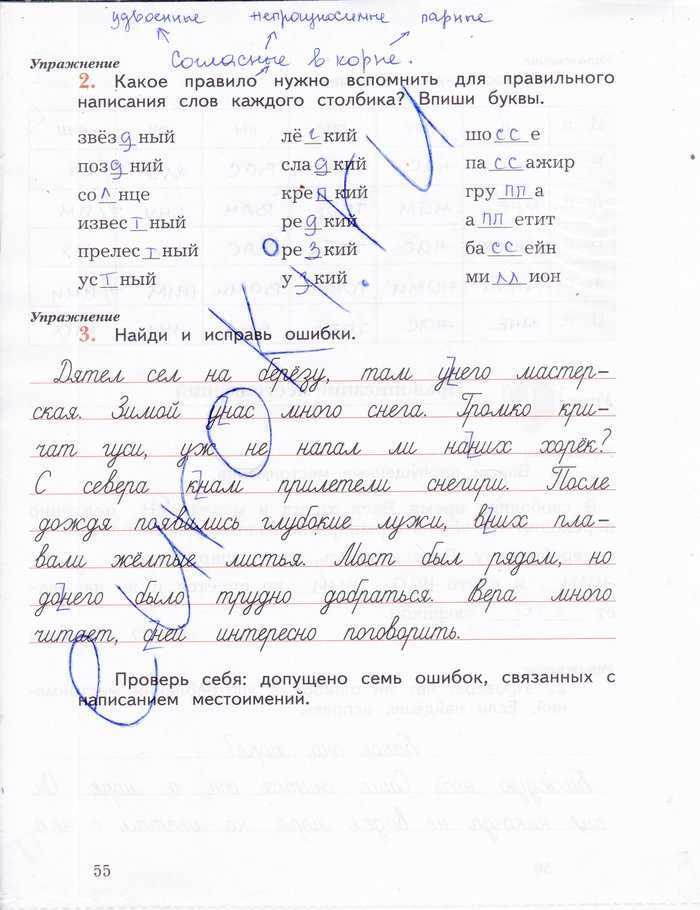 удвоенные непроизносимые парные
Упражнение
Согласные в корне.
2. Какое правило нужно вспомнить для правильного
написания слов каждого столбика? Впиши буквы.
звёздный лёгкий шоссе
поздний сладкий пассажир
солнце крепкий группа
известный редкий аппетит
прелестный резкий бассейн
устный узкий миллион
Упражнение
3. Найди и исправь ошибки.
Дятел сел на берёзу, там у него мастер-
ская. Зимой у нас много снега. Громко кри-
чат гуси, уж не напал ли на них хорёк?
С севера к нам прилетели снегири. После
дождя появились глубокие лужи, в них пла-
вали жёлтые листья. Мост был рядом, но
до него было трудно добраться. Вера много
читает, с ней интересно поговорить.
Проверь себя: допущено семь ошибок, связанных с
написанием местоимений.
55